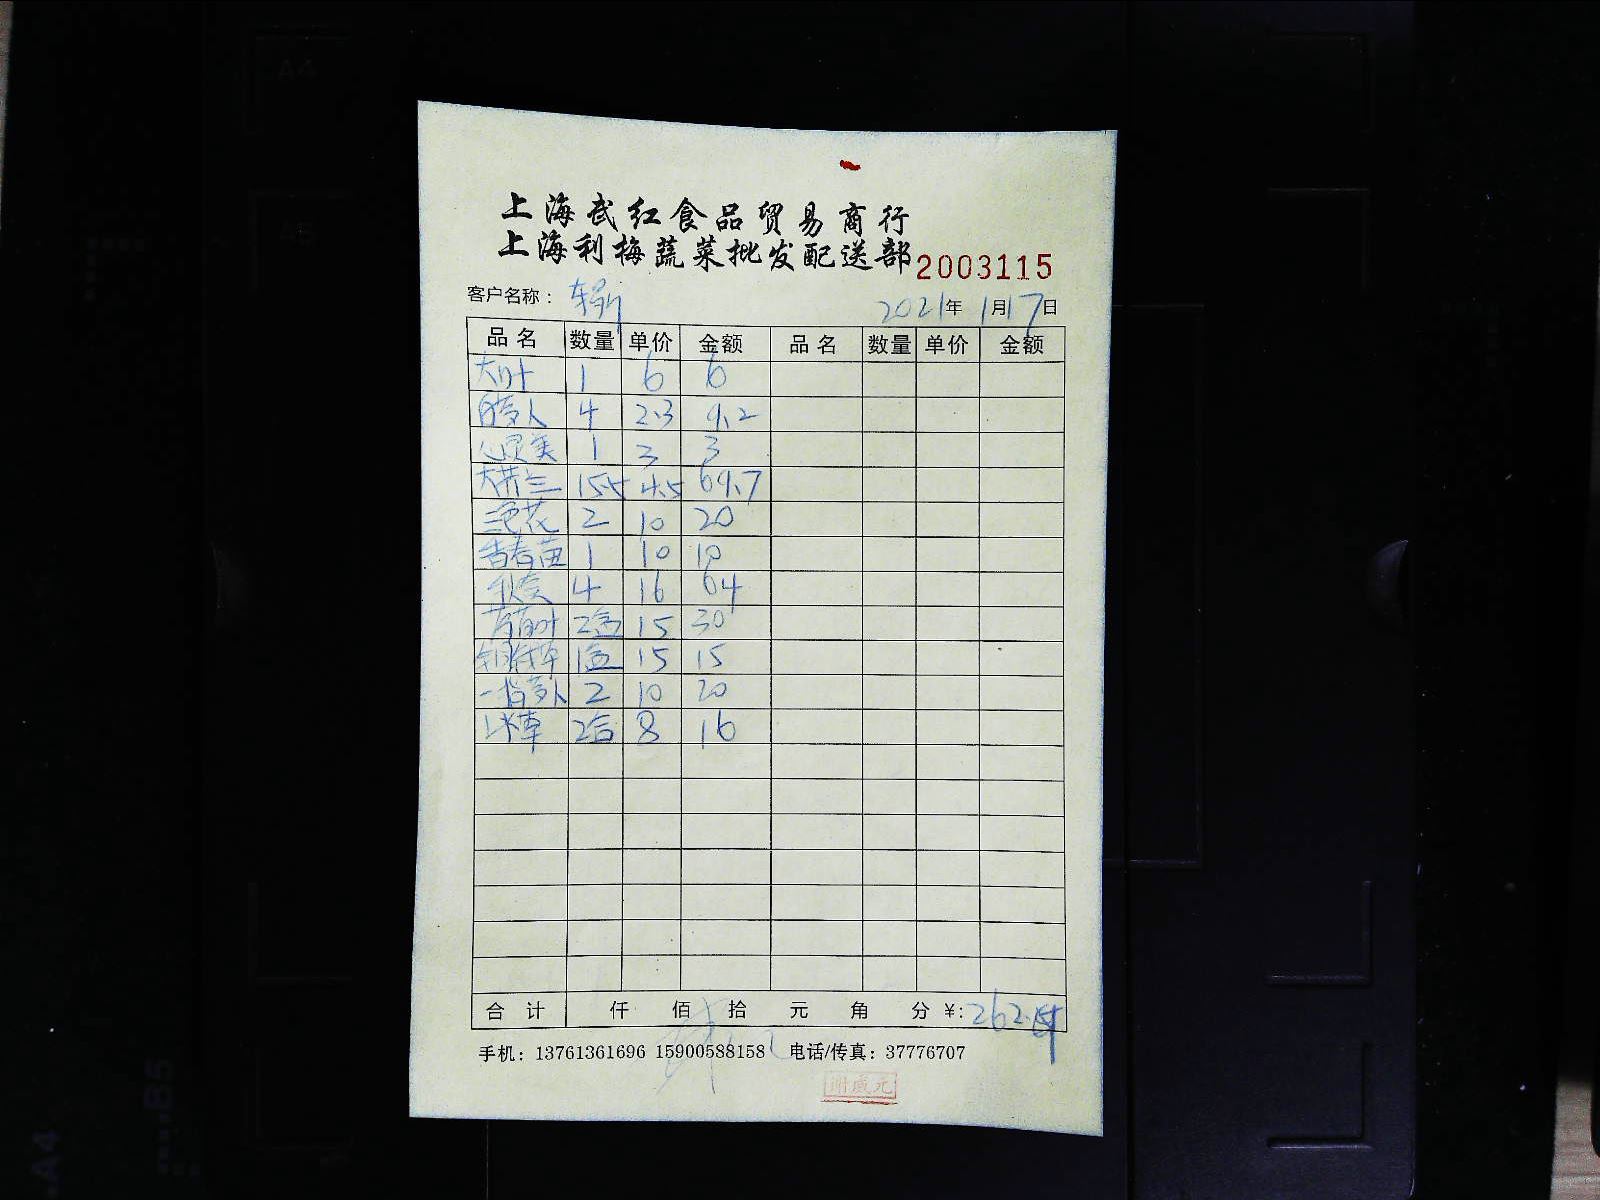 上海武红食品贸易商行
上海利梅蔬菜批发配送部 2003115
客户名称： 2021年 1月17日
品名 数量 单价 金额 品名 数量 单价 金额
大叶 1 6 6
4 2.3 9.2
心灵美 1 3 3
大芥兰 15.5 4.5 69.7
三色花 2 10 20
香春苗 1 10 10
秋葵 4 16 64
2盒 15 30
1盒 15 15
2 10 20
冰草 2 8 16
合计 仟 佰 拾 元 角 分 ¥: 262.
手机：13761361696 15900588158 电话/传真：37776707